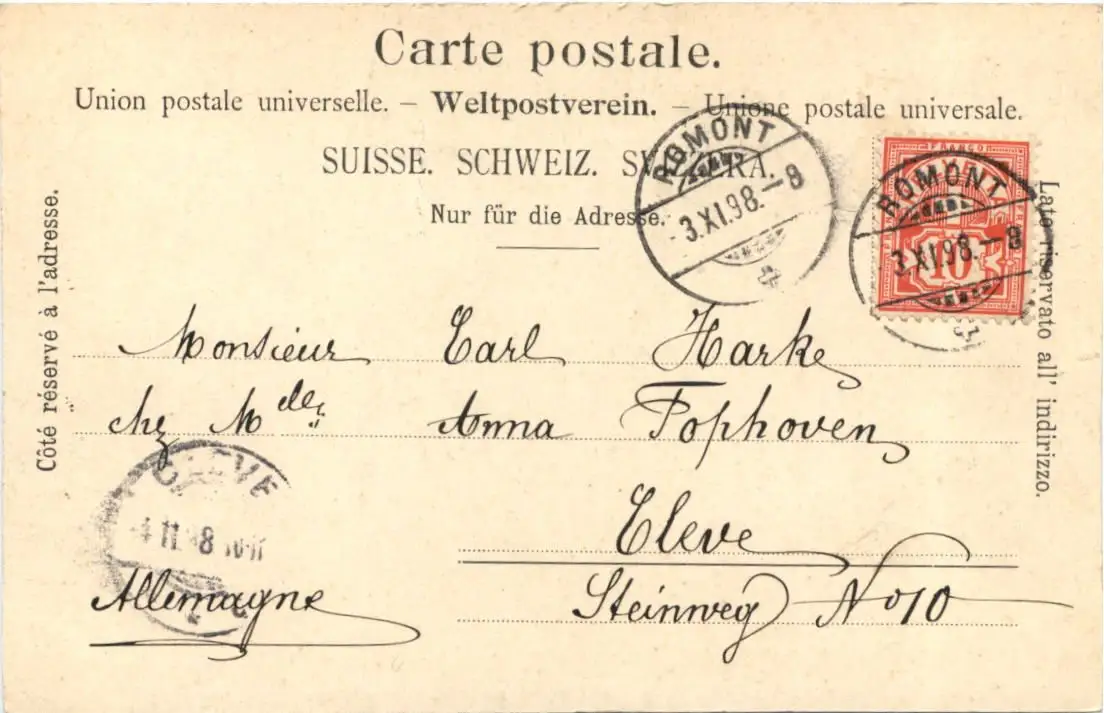 Carte postale.
Union postale universelle. – Weltpostverein. – Unione postale universale.
SUISSE. SCHWEIZ. SVIZZERA.
Nur für die Adresse.
Côté réservé à l'adresse.
Lato riservato all' indirizzo.
ROMONT
3.XI.98.–8
ROMONT
3.XI.98.–8
FRANCO
10
Monsieur Carl Harke
chez Mdelle Anna Tophoven
Cleve
Steinweg No 10
Allemagne
CLEVE
4 11 98